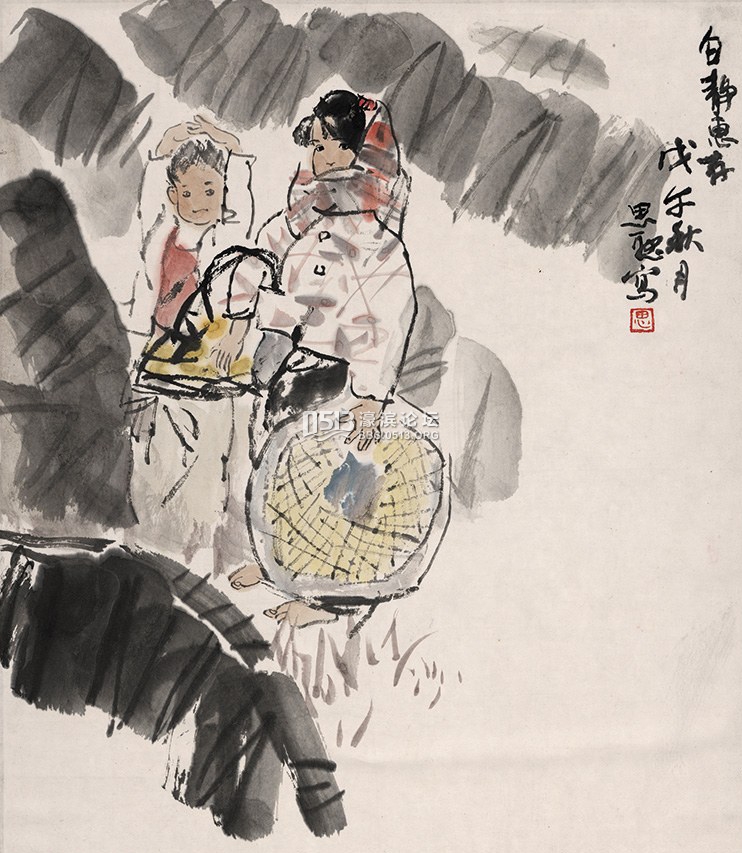 白静惠存
戊午秋月
思聪写
思
1513 濠滨论坛
BBS.0513.ORG